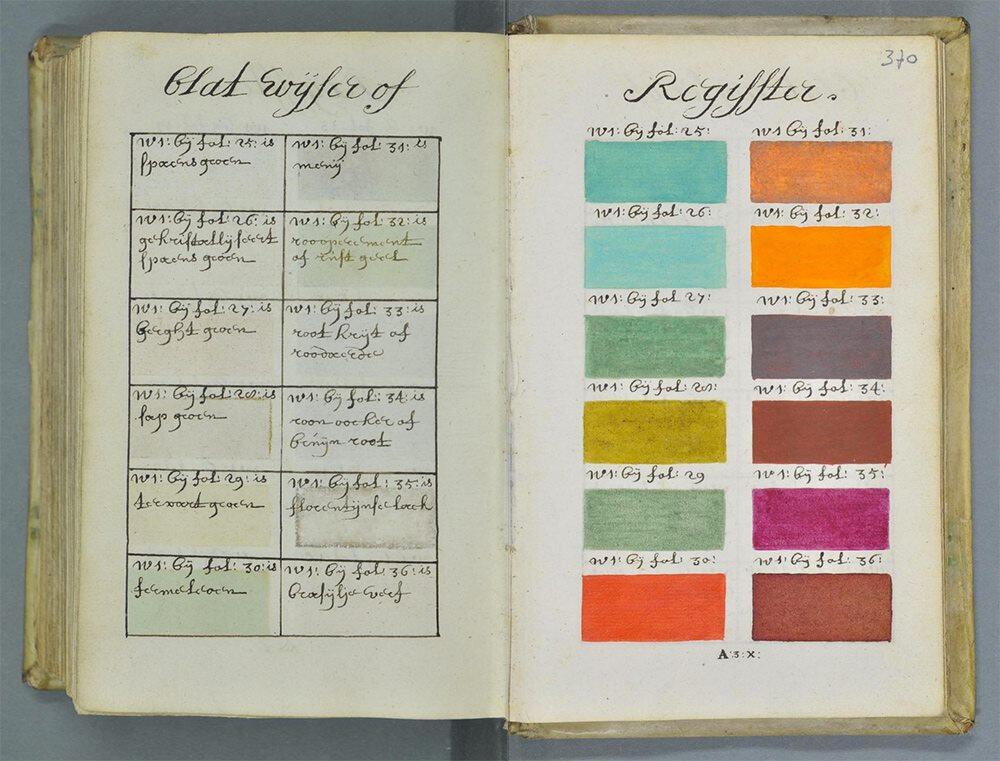 blat wijser of
w1: bij fol: 25: is
spaens groen
w1: bij fol: 31: is
menij
w1: bij fol: 26: is
gekristallijseert
spaens groen
w1: bij fol: 32: is
roooperement
of rust geel
w1: bij fol: 27: is
berght groen
w1: bij fol: 33: is
root krijt of
roodaerde
w1: bij fol: 28: is
sap groen
w1: bij fol: 34: is
roon oocker of
bruijn root
w1: bij fol: 29: is
terwart groen
w1: bij fol: 35: is
florentijnse lack
w1: bij fol: 30: is
fermeloen
w1: bij fol: 36: is
brasijlje verf
Regisster.
370
w1: bij fol: 25:
w1 bij fol: 31:
w1: bij fol: 26:
w1: bij fol: 32:
w1: bij fol: 27:
w1: bij fol: 33:
w1: bij fol: 28:
w1: bij fol: 34:
w1: bij fol: 29
w1: bij fol: 35:
w1: bij fol: 30:
w1: bij fol: 36:
A:3:X: